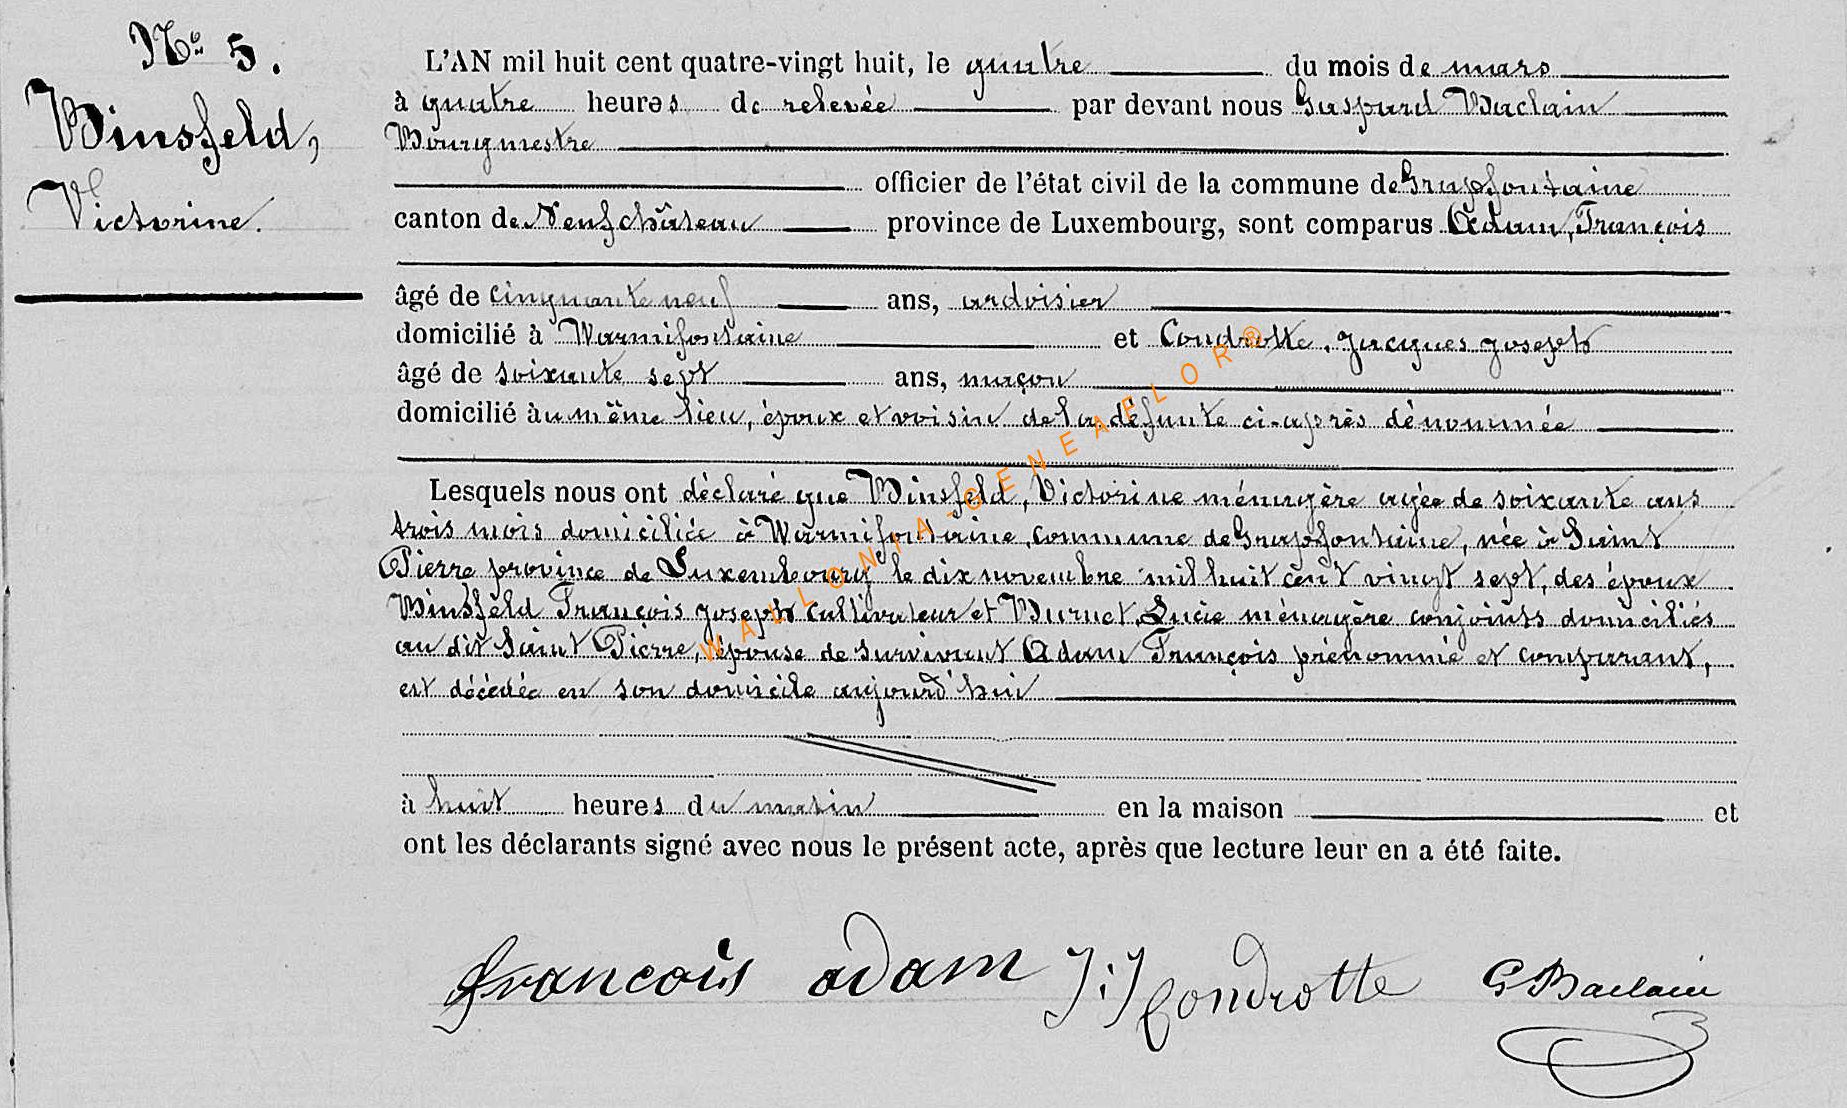 N° 5.
Winsfeld,
Victorine.
L'AN mil huit cent quatre-vingt huit, le quatre du mois de mars
à quatre heures de relevée par devant nous Gaspard Baclain
Bourgmestre
officier de l'état civil de la commune de Grapfontaine
canton de Neufchâteau province de Luxembourg, sont comparus Adam, François
âgé de cinquante neuf ans, ardoisier
domicilié à Warmifontaine et Condrotte, Jacques Joseph
âgé de soixante sept ans, maçon
domicilié au même lieu, époux et voisin de la défunte ci-après dénommée
Lesquels nous ont déclaré que Winsfeld, Victorine ménagère agée de soixante ans
trois mois domiciliée à Warmifontaine, commune de Grapfontaine, née à Saint
Pierre province de Luxembourg le dix novembre mil huit cent vingt sept, des époux
Winsfeld François Joseph cultivateur et Lucie ménagère conjoints domiciliés
au dit Saint Pierre, épouse de survivant Adam François prénommé et comparant,
est décédée en son domicile aujourd'hui
à huit heures du matin en la maison et
ont les déclarants signé avec nous le présent acte, après que lecture leur en a été faite.
francois adam J:J Condrotte G Baclain
WALLONIA-GENEAFLOR®